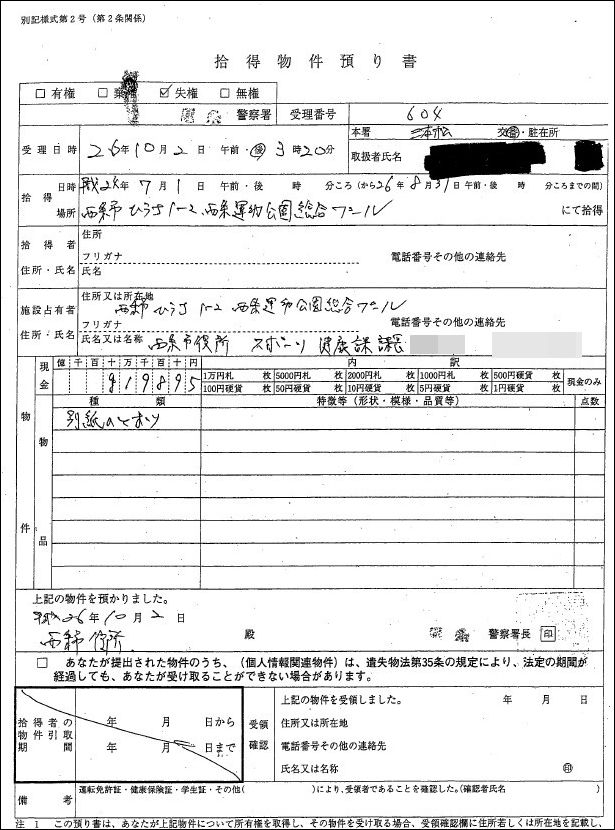 別記様式第2号（第2条関係）
拾得物件預り書
□ 有権 □ 棄権 ☑ 失権 □ 無権
警察署 受理番号 604
受理日時 26年10月2日 午前・後 3時20分
本署 三本松 交番・駐在所
取扱者氏名
拾得 日時 平成26年7月1日 午前・後 時 分ころ（から26年8月31日 午前・後 時 分ころまでの間）
場所 西条市ひうち1-2 西条運動公園総合プール にて拾得
拾得者 住所
フリガナ 電話番号その他の連絡先
住所・氏名 氏名
施設占有者 住所又は所在地 西条市ひうち1-2 西条運動公園総合プール
フリガナ 電話番号その他の連絡先
住所・氏名 氏名又は名称 西条市役所 スポーツ健康課
物件 現金 億千百十万千百十円 内訳
919895
1万円札 枚 5000円札 枚 2000円札 枚 1000円札 枚 500円硬貨 枚 現金のみ
100円硬貨 枚 50円硬貨 枚 10円硬貨 枚 5円硬貨 枚 1円硬貨 枚
物品 種類 特徴等（形状・模様・品質等） 点数
別紙のとおり
上記の物件を預かりました。
平成26年10月2日
西条市役所 殿 警察署長 印
□ あなたが提出された物件のうち、（個人情報関連物件）は、遺失物法第35条の規定により、法定の期間が
経過しても、あなたが受け取ることができない場合があります。
拾得者の物件引取期間 年 月 日から
年 月 日まで
受領確認 上記の物件を受領しました。 年 月 日
住所又は所在地
電話番号その他の連絡先
氏名又は名称 印
備考 運転免許証・健康保険証・学生証・その他（ ）により、受領者であることを確認した。（確認者氏名 ）
注 1 この預り書は、あなたが上記物件について所有権を取得し、その物件を受け取る場合、受領確認欄に住所若しくは所在地を記載し、